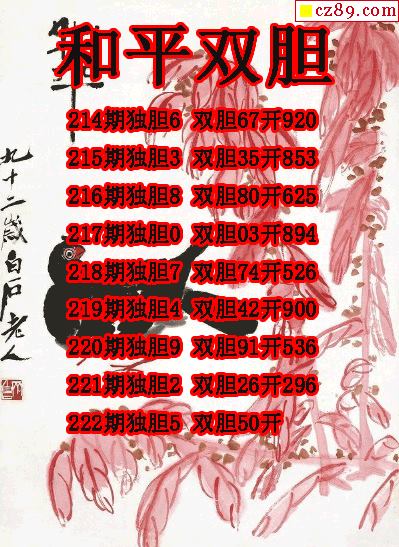 cz89.com
和平双胆
214期独胆6 双胆67开920
215期独胆3 双胆35开853
216期独胆8 双胆80开625
217期独胆0 双胆03开894
218期独胆7 双胆74开526
219期独胆4 双胆42开900
220期独胆9 双胆91开536
221期独胆2 双胆26开296
222期独胆5 双胆50开
九十二岁白石老人